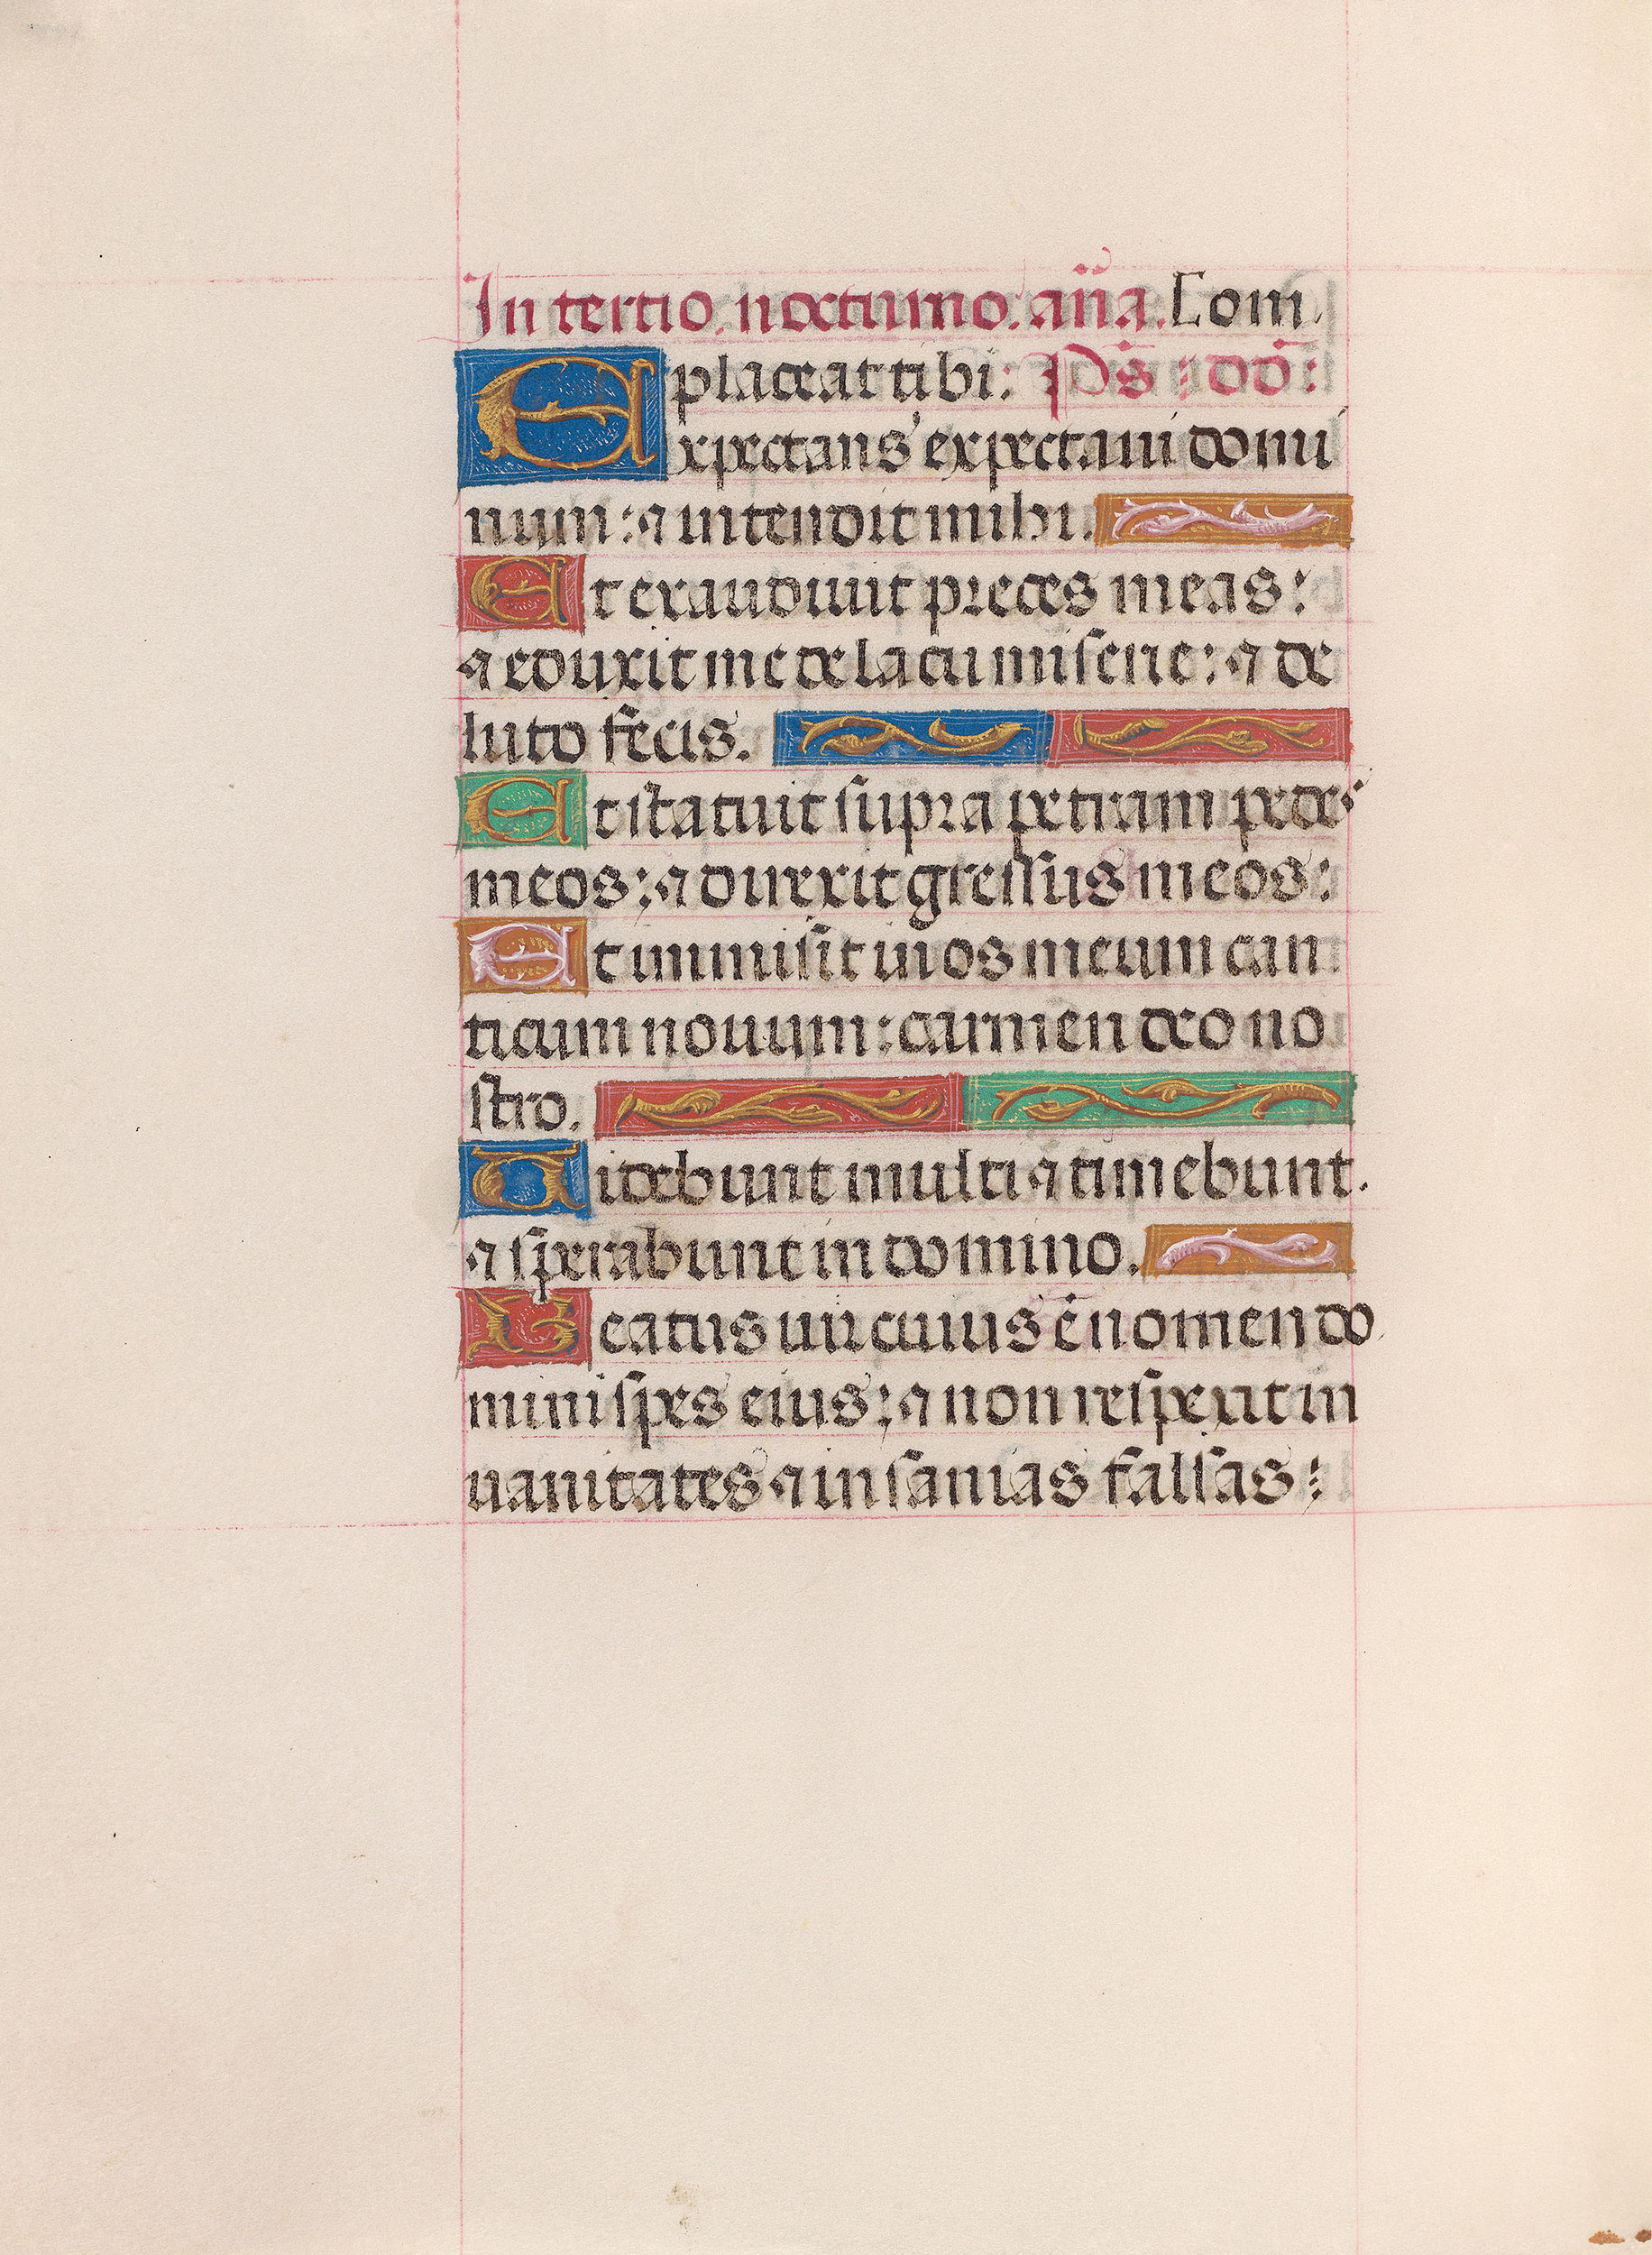 In tertio. nocturno. añā. Com
placeat tibi: Ps̄ : dd̄:
Expectans expectaui domi
num: ⁊ intendit mihi.
Et exaudiuit preces meas:
⁊ eduxit me de lacu miserie: ⁊ de
luto fecis.
Et statuit supra petram pedes
meos: ⁊ direxit gressus meos:
Et immisit in os meum can
ticum nouum: carmen deo no
stro.
Videbunt multi ⁊ timebunt.
⁊ sperabunt in domino.
Beatus uir cuius ē nomen do
mini spes eius: ⁊ non respexit in
uanitates ⁊ insanias falsas: